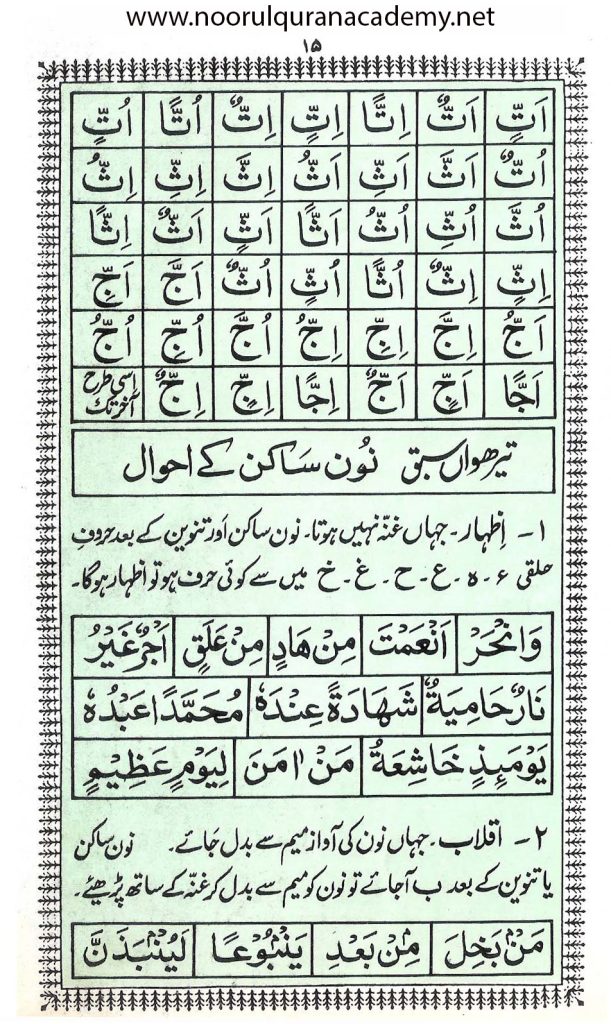 www.noorulquranacademy.net
۱۵
اَتٍّ اَتٌّ اِتًّا اِتٍّ اِتٌّ اُتًّا اُتٍّ
اُتٌّ اَثَّ اَثِّ اَثُّ اِثَّ اِثِّ اِثُّ
اُثَّ اُثِّ اُثُّ اَثًّا اَثٍّ اَثٌّ اِثًّا
اِثٍّ اِثٌّ اُثًّا اُثٍّ اُثٌّ اَجَّ اَجِّ
اَجُّ اِجَّ اِجِّ اِجُّ اُجَّ اُجِّ اُجُّ
اَجًّا اَجٍّ اَجٌّ اِجًّا اِجٍّ اِجٌّ اسی طرح آخر تک
تیرھواں سبق نُون سَاکن کے احوال
۱۔ اِظہار۔ جہاں غنّہ نہیں ہوتا۔ نون ساکن اور تنوین کے بعد حروفِ
حلقی ء۔ہ۔ع۔ح۔غ۔خ میں سے کوئی حرف ہو تو اظہار ہوگا۔
وَانْحَرْ اَنْعَمْتَ مِنْ هَادٍ مِنْ عَلَقٍ اَجْرٌ غَيْرُ
نَارٌ حَامِيَةٌ شَهَادَةً عِنْدَهٗ مُحَمَّدًا عَبْدُهٗ
يَوْمَئِذٍ خَاشِعَةٌ مَنْ اٰمَنَ لِيَوْمٍ عَظِيْمٍ
۲۔ اقلاب۔ جہاں نون کی آواز میم سے بدل جائے۔ نون ساکن
یا تنوین کے بعد ب آجائے تو نون کو میم سے بدل کر غنّہ کے ساتھ پڑھیئے۔
مَنْۢ بَخِلَ مِنْۢ بَعْدِ يَنْۢبُوْعًا لَيُنْۢبَذَنَّ